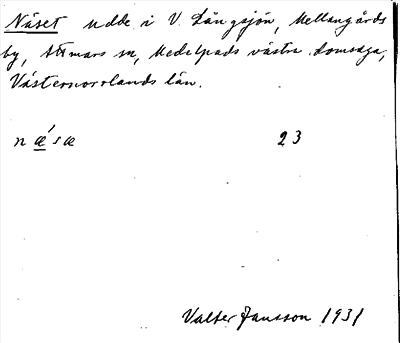 Näset udde i V. Långsjön, Mellangårds
by, Attmars sn, Medelpads västra domsaga,
Västernorrlands län.
næ´sæ 23
Valter Jansson 1931